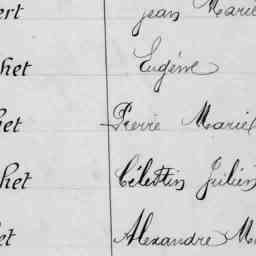 ert Jean Marie
het Eugène
het Pierre Marie
het Célestin Julien
et Alexandre M